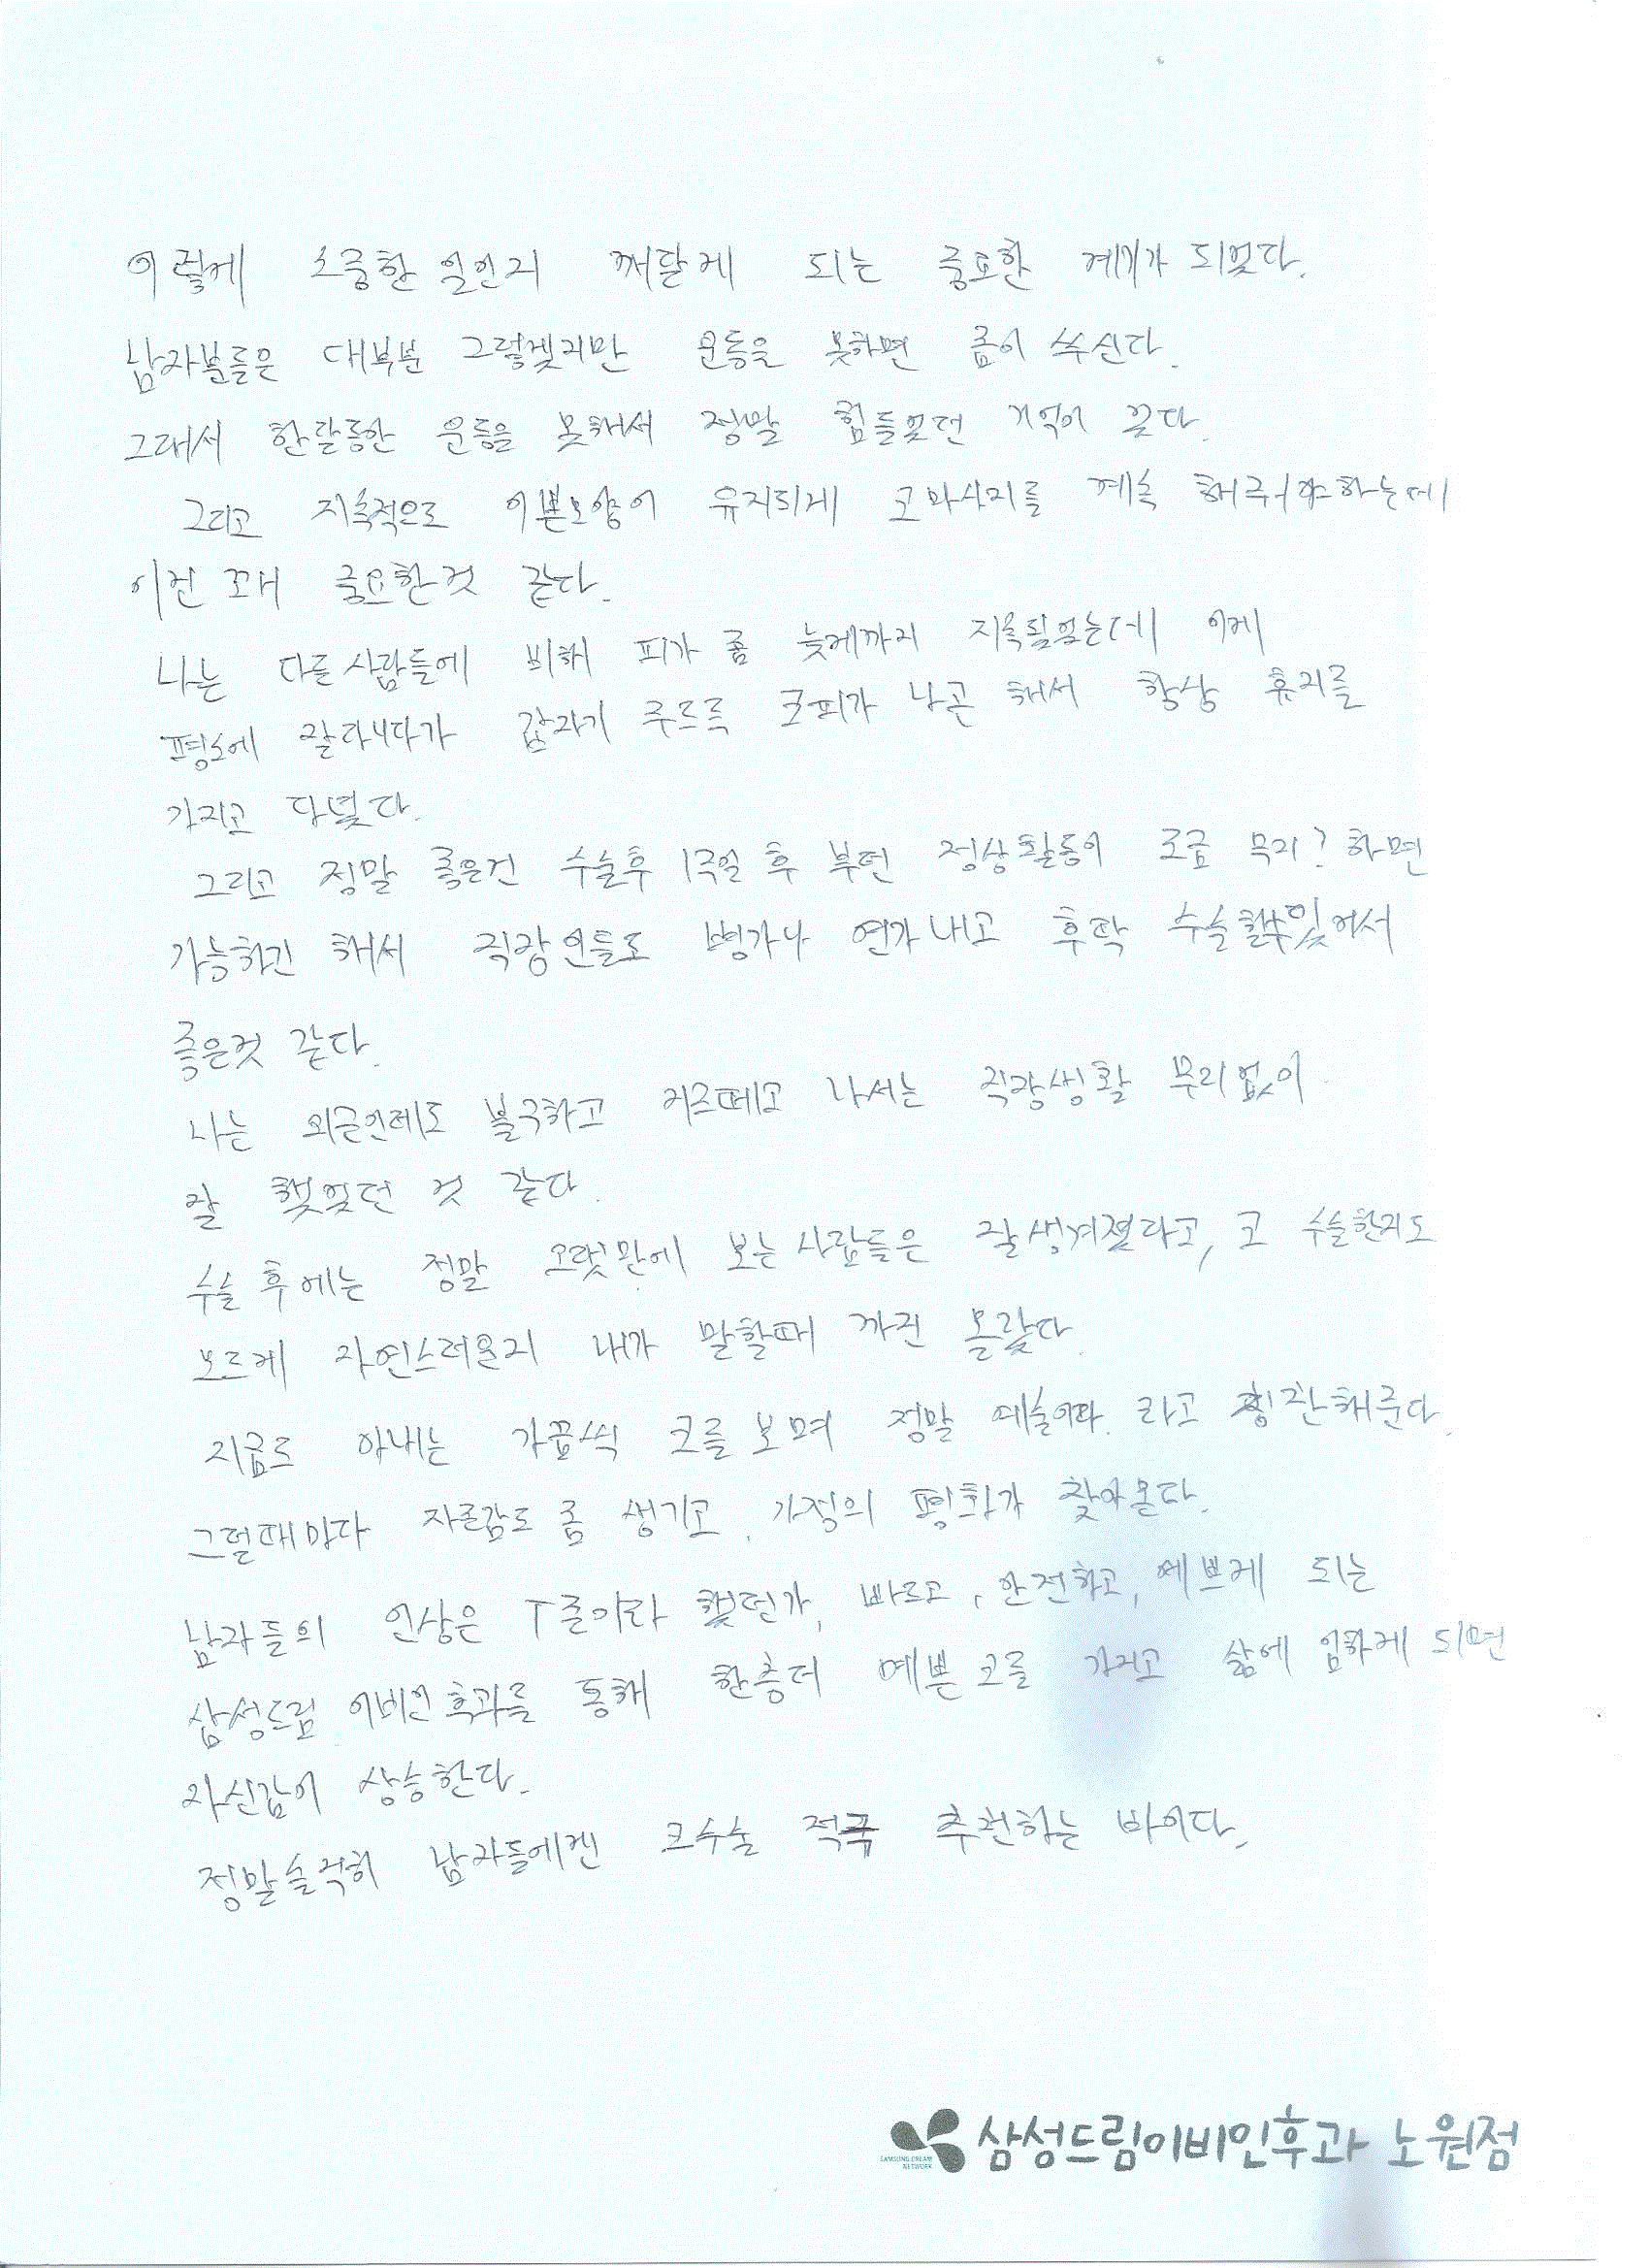 이렇게 소중한 일인지 깨닫게 되는 중요한 계기가 되었다.
남자분들은 대부분 그렇겠지만 운동을 못하면 좀이 쑤신다.
그래서 한달동안 운동을 못해서 정말 힘들었던 기억이 있다.
그리고 지속적으로 이쁜모양이 유지되게 코마사지를 계속 해주어야하는데
이건 꼬매 중요한것 같다.
나는 다른사람들에 비해 피가 좀 늦게까지 지속됬었는데 이게
평소에 잘다니다가 갑자기 주르륵 코피가 나곤 해서 항상 휴지를
가지고 다녔다.
그리고 정말 좋은건 수술후 1주일 후 부턴 정상활동이 조금 무리? 하면
가능하긴 해서 직장인들도 병가나 연가내고 후딱 수술할수있어서
좋은것 같다.
나는 외근인데도 불구하고 거즈떼고 나서는 직장생활 무리없이
잘 했었던 것 같다.
수술 후에는 정말 오랫만에 보는사람들은 잘생겨졌다고, 코 수술한지도
모르게 자연스러운지 내가 말할때 까진 몰랐다.
지금도 아내는 가끔씩 코를 보며 정말 예술이다. 라고 칭찬해준다.
그럴때마다 자존감도 좀 생기고, 가정의 평화가 찾아온다.
남자들의 인상은 T존이라 했던가, 바르고, 안전하고, 예쁘게 되는
삼성드림 이비인후과를 통해 한층더 예쁜코를 가지고 삶에 임하게 되면
자신감이 상승한다.
정말솔직히 남자들에겐 코수술 적극 추천하는 바이다.
삼성드림이비인후과 노원점
SAMSUNG DREAM
NETWORK